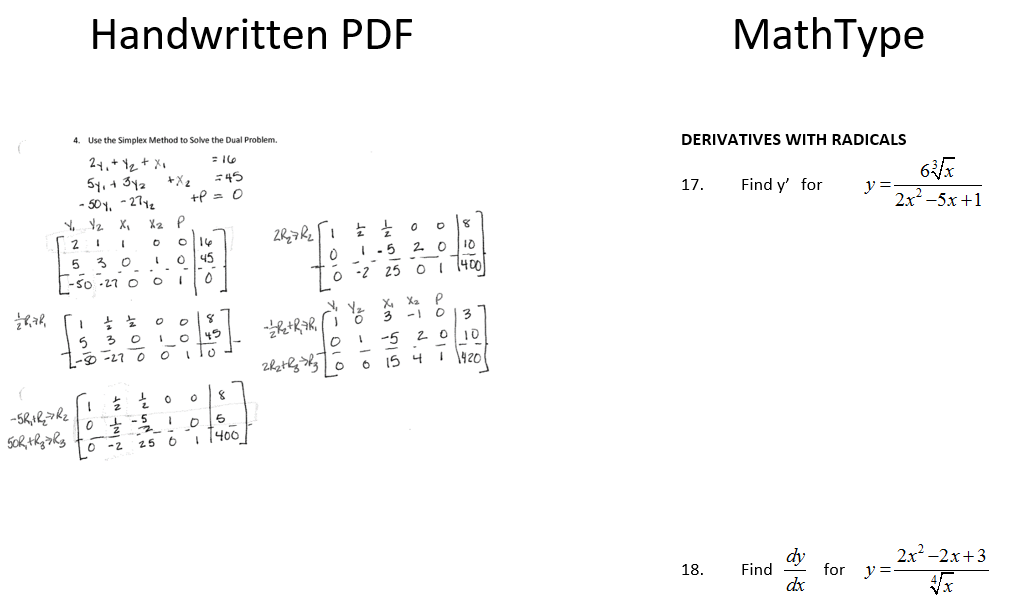 Handwritten PDF
4. Use the Simplex Method to Solve the Dual Problem.
2y₁ + y₂ + x₁ = 16
5y₁ + 3y₂ + x₂ = 45
-50y₁ - 27y₂ + P = 0
y₁ y₂ x₁ x₂ P
2 1 1 0 0 | 16
5 3 0 1 0 | 45
-50 -27 0 0 1 | 0
½R₁→R₁
1 ½ ½ 0 0 | 8
5 3 0 1 0 | 45
-50 -27 0 0 1 | 0
-5R₁+R₂→R₂
50R₁+R₃→R₃
1 ½ ½ 0 0 | 8
0 ½ -5/2 1 0 | 5
0 -2 25 0 1 | 400
2R₂→R₂
1 ½ ½ 0 0 | 8
0 1 -5 2 0 | 10
0 -2 25 0 1 | 400
-½R₂+R₁→R₁
2R₂+R₃→R₃
y₁ y₂ x₁ x₂ P
1 0 3 -1 0 | 3
0 1 -5 2 0 | 10
0 0 15 4 1 | 420
MathType
DERIVATIVES WITH RADICALS
17. Find y′ for y = 6∛x / (2x² − 5x + 1)
18. Find dy/dx for y = (2x² − 2x + 3) / ∜x